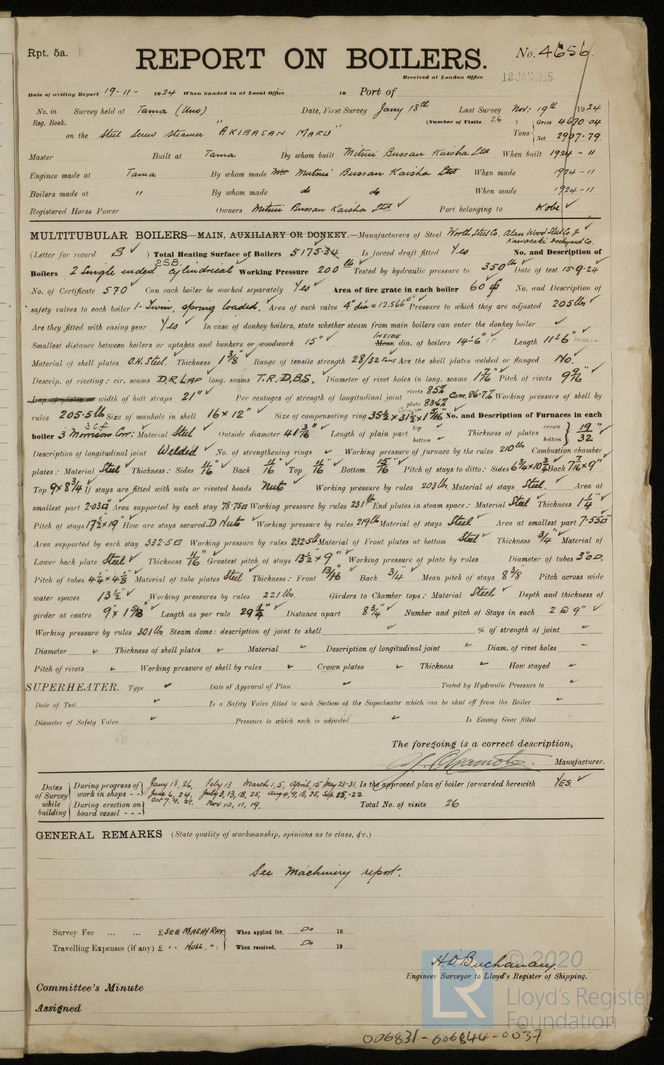 Rpt. 5a.
REPORT ON BOILERS.
No. 4656.
Received at London Office
Date of writing Report 19-11- 1924 When handed in at Local Office 19 Port of
No. in Survey held at Tama (Uno) Date, First Survey Jany 18th Last Survey Nov: 19th 1924
Reg. Book. (Number of Visits 26 ) Gross 4670.04
on the Steel Screw Steamer "AKIBASAN MARU" Tons Net 2907.79
Master Built at Tama By whom built Mitsui Bussan Kaisha Ltd When built 1924-11
Engines made at Tama By whom made Mitsui Bussan Kaisha Ltd When made 1924-11
Boilers made at " By whom made do do When made 1924-11
Registered Horse Power Owners Mitsui Bussan Kaisha Ltd Port belonging to Kobe
MULTITUBULAR BOILERS—MAIN, AUXILIARY OR DONKEY.—Manufacturers of Steel Worth Steel Co, Alan Wood Steel Co &
Kawasaki Dockyard Co.
(Letter for record S ) Total Heating Surface of Boilers 5175.34 Is forced draft fitted Yes No. and Description of
Boilers 2 Single ended cylindrical Working Pressure 200 lb Tested by hydraulic pressure to 350 lb Date of test 15-9-24
No. of Certificate 570 Can each boiler be worked separately Yes Area of fire grate in each boiler 60 No. and Description of
safety valves to each boiler 1-Twin, spring loaded. Area of each valve 4" dia = 12.566" Pressure to which they are adjusted 205 lbs
Are they fitted with easing gear Yes In case of donkey boilers, state whether steam from main boilers can enter the donkey boiler
Smallest distance between boilers or uptakes and bunkers or woodwork 15" INSIDE dia. of boilers 14-6" Length 11-6"
Material of shell plates O.H. Steel. Thickness 1 3/8" Range of tensile strength 28/32 Tons Are the shell plates welded or flanged No.
Descrip. of riveting: cir. seams D.R. LAP long. seams T.R.D.B.S. Diameter of rivet holes in long. seams 1 7/16 Pitch of rivets 9 7/16
width of butt straps 21" Per centages of strength of longitudinal joint rivets 85% plate Com. 86.7% Working pressure of shell by
rules 205.5 lb Size of manhole in shell 16 x 12" Size of compensating ring No. and Description of Furnaces in each
boiler 3 Morrison Corr: Material Steel Outside diameter 41 3/16 Length of plain part top bottom Thickness of plates crown bottom 19/32
Description of longitudinal joint Welded No. of strengthening rings Working pressure of furnace by the rules 210 lb Combustion chamber
plates: Material Steel Thickness: Sides 11/16 Back 11/16 Top 11/16 Bottom 15/16 Pitch of stays to ditto: Sides Back
Top 9 x 8 3/4 If stays are fitted with nuts or riveted heads Nuts Working pressure by rules 203 lb. Material of stays Steel Area at
smallest part 2.03 Area supported by each stay 78.75 Working pressure by rules 231 lb End plates in steam space: Material Steel Thickness 1 1/4
Pitch of stays 17 1/2 x 19 How are stays secured D Nuts Working pressure by rules 219 lb Material of stays Steel Area at smallest part 7.55
Area supported by each stay 332.5 Working pressure by rules 232.5 lb Material of Front plates at bottom Steel Thickness 3/4 Material of
Lower back plate Steel Thickness 11/16 Greatest pitch of stays 13 1/2 x 9" Working pressure of plate by rules Diameter of tubes 3" O.D.
Pitch of tubes 4 1/4 x 4 1/8 Material of tube plates Steel Thickness: Front 13/16 Back 3/4 Mean pitch of stays 8 3/8 Pitch across wide
water spaces 13 1/2" Working pressures by rules 221 lbs. Girders to Chamber tops: Material Steel Depth and thickness of
girder at centre 9" x 1 5/8 Length as per rule 29 1/4 Distance apart 8 3/4" Number and pitch of Stays in each 2 @ 9"
Working pressure by rules 301 lbs Steam dome: description of joint to shell % of strength of joint
Diameter Thickness of shell plates Material Description of longitudinal joint Diam. of rivet holes
Pitch of rivets Working pressure of shell by rules Crown plates Thickness How stayed
SUPERHEATER. Type Date of Approval of Plan Tested by Hydraulic Pressure to
Date of Test Is a Safety Valve fitted to each Section of the Superheater which can be shut off from the Boiler
Diameter of Safety Valve Pressure to which each is adjusted Is Easing Gear fitted
The foregoing is a correct description,
Manufacturer.
Dates of Survey while building During progress of work in shops - - Jany 18, 26, Feby 13 March 1, 5, April, 15, May 23-31, Is the approved plan of boiler forwarded herewith YES.
During erection on board vessel - - - Nov 10, 11, 19. Total No. of visits 26
GENERAL REMARKS (State quality of workmanship, opinions as to class, &c.)
See Machinery report.
Survey Fee ... ... £ SEE MACHY RPT When applied for, Do 19
Travelling Expenses (if any) £ When received, Do 19
H.D. Buchanan.
Engineer Surveyor to Lloyd's Register of Shipping.
Committee's Minute
Assigned
LR © 2020
Lloyd's Register
Foundation
006831-006844-0037